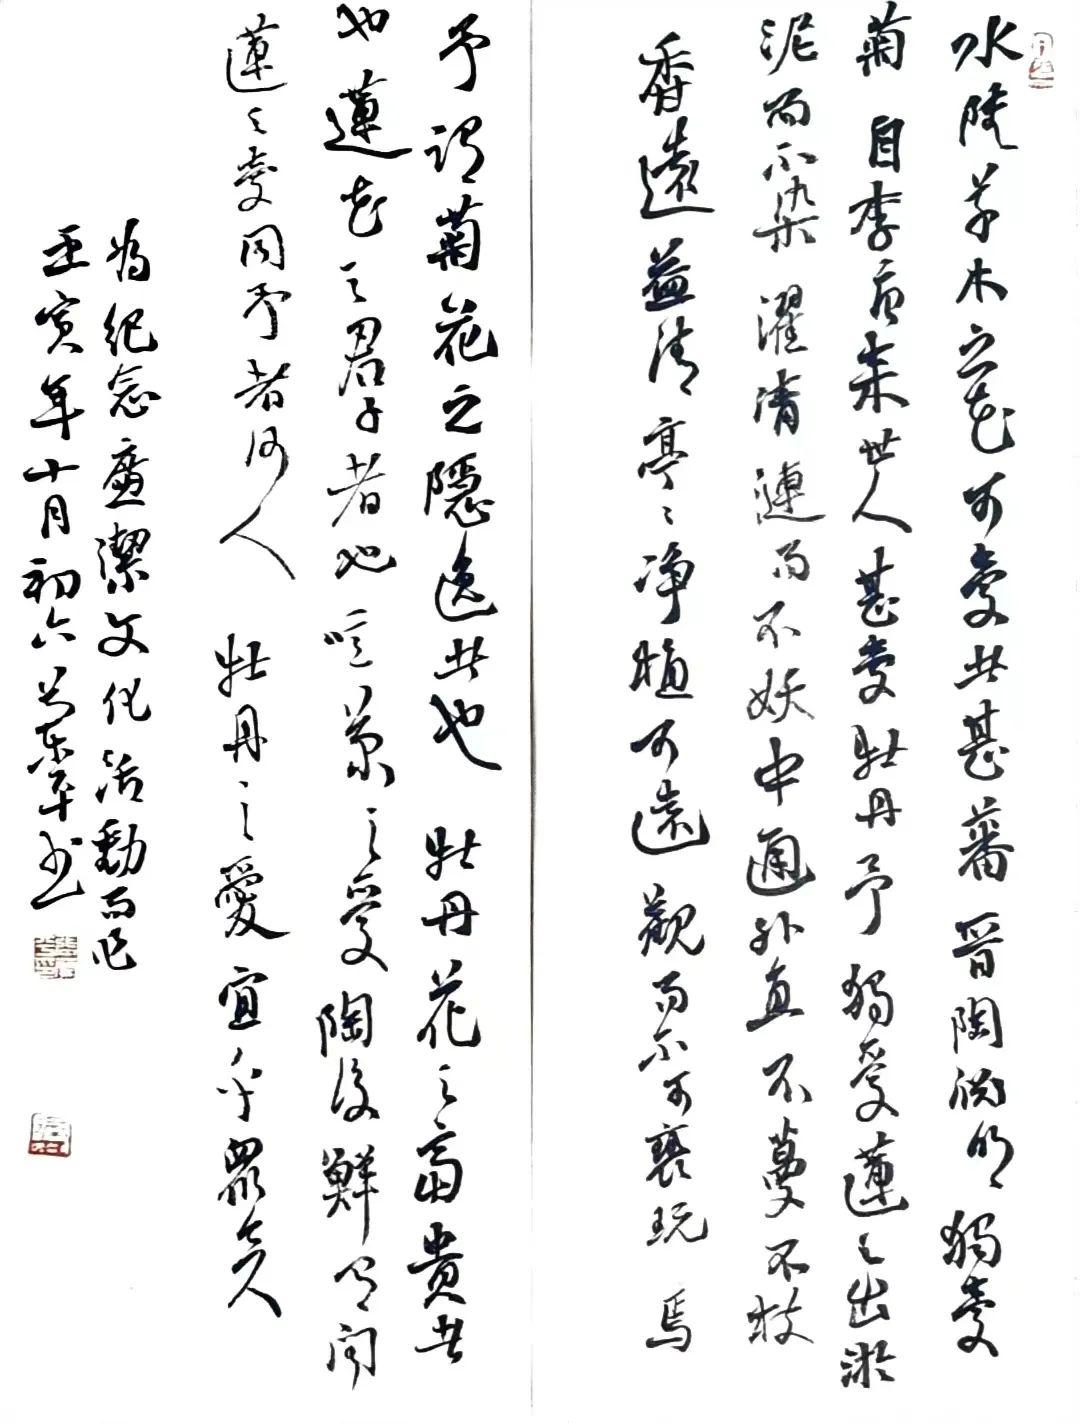 水陸草木之花可愛者甚蕃 晋陶渊明獨愛
菊 自李唐来世人甚愛牡丹予獨愛蓮之出淤
泥而不染濯清漣而不妖中通外直不蔓不枝
香遠益清亭〻净植可遠觀而不可褻玩焉
予谓菊花之隱逸者也 牡丹花之富貴者
也蓮花之君子者也噫菊之愛陶後鮮有聞
蓮之愛同予者何人 牡丹之愛宜乎眾矣
为纪念廉潔文化活動而作
壬寅年十月初六书